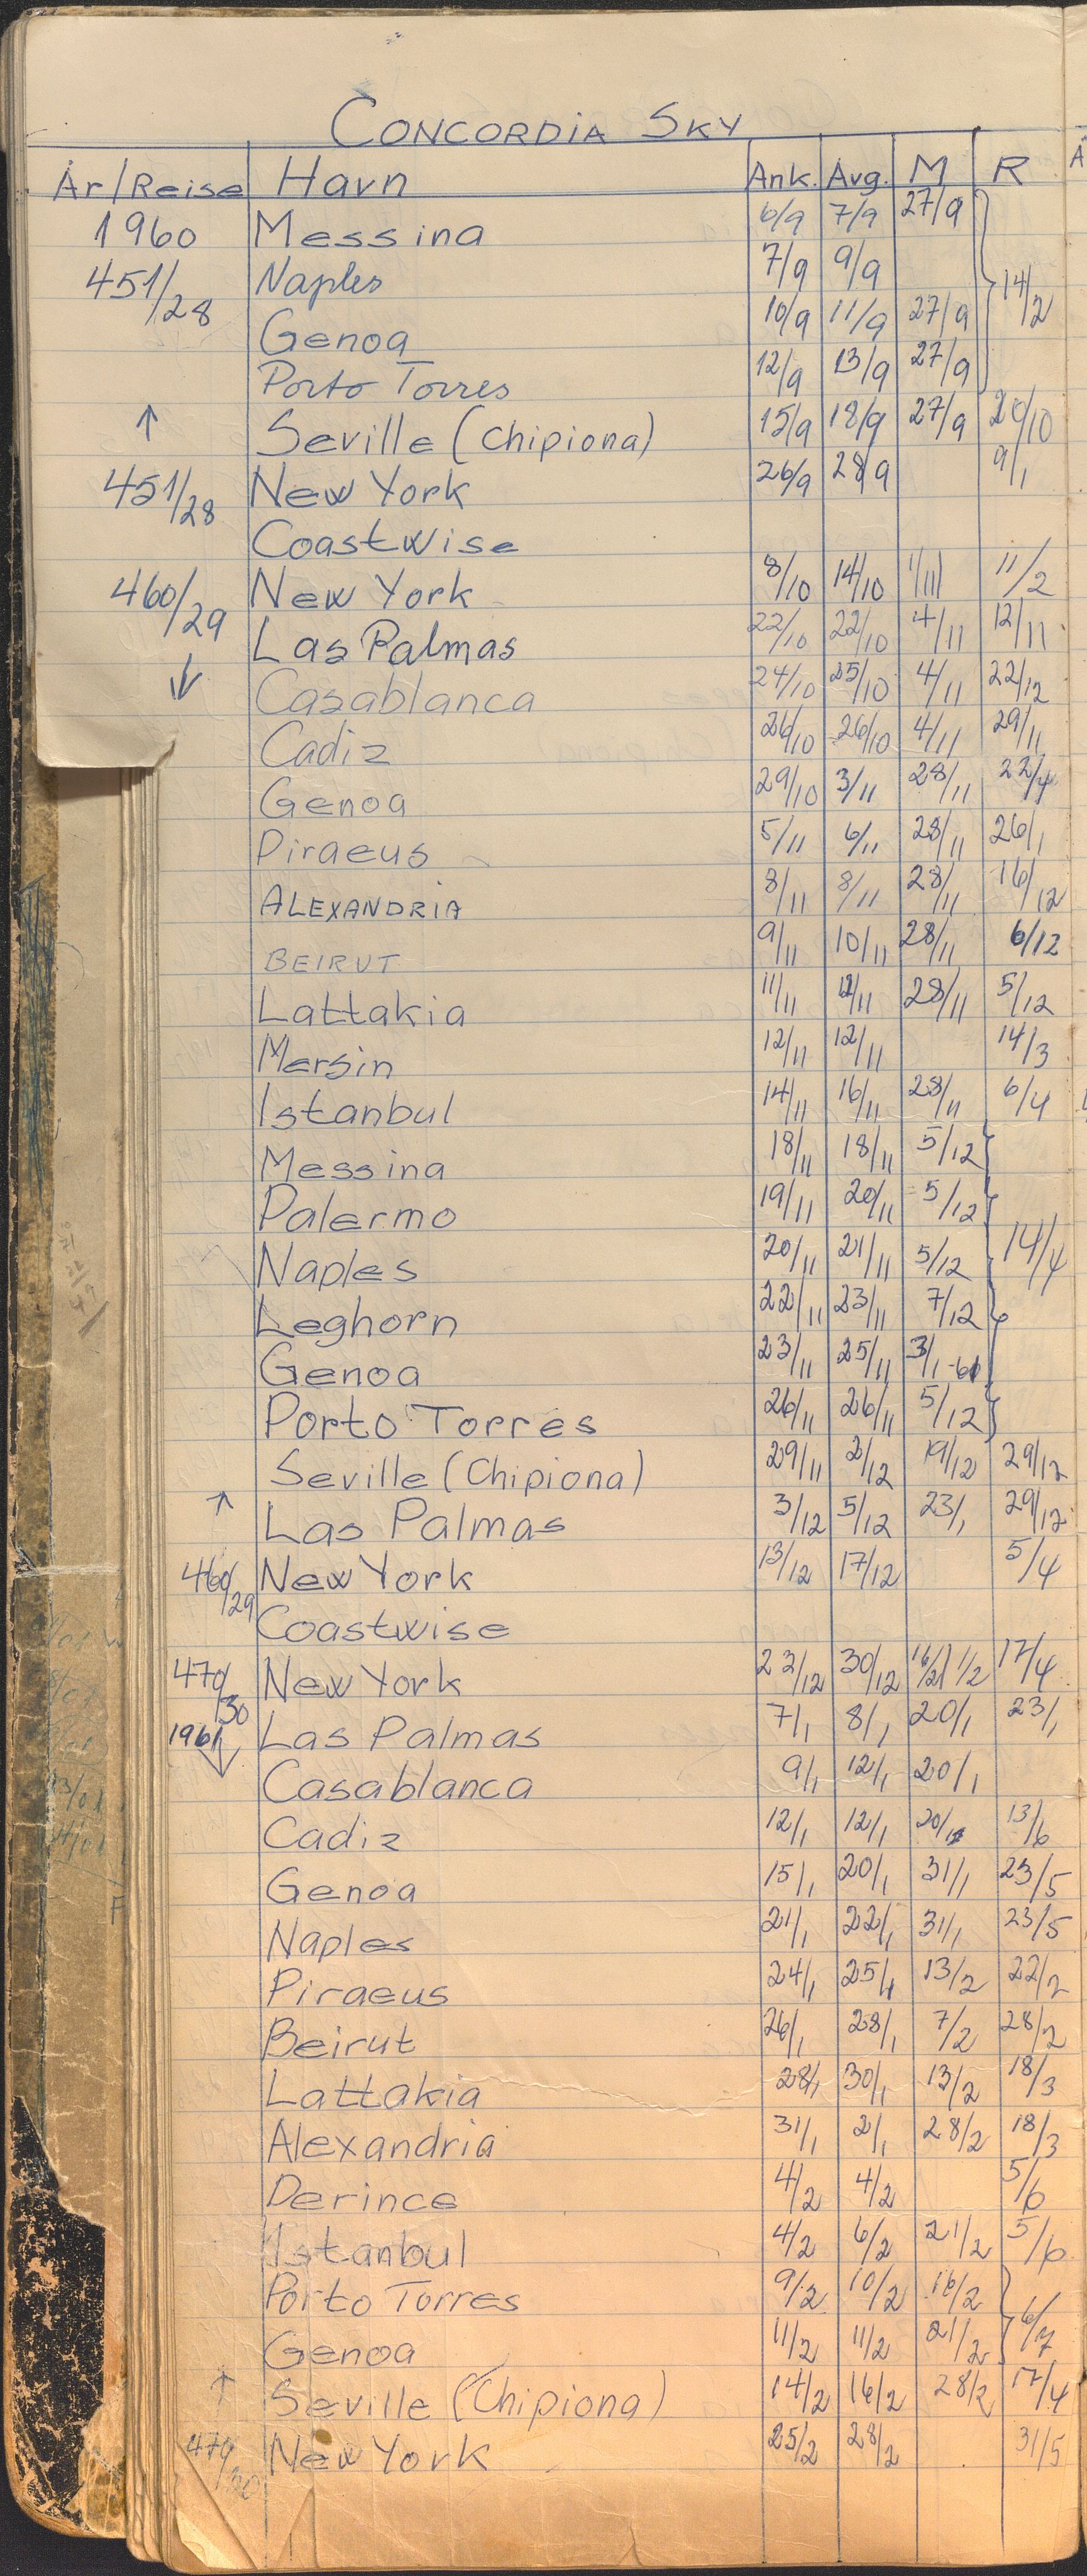 CONCORDIA SKY
År/Reise Havn Ank. Avg. M R
1960 Messina 6/9 7/9 27/9
451/28 Naples 7/9 9/9 14/2
Genoa 10/9 11/9 27/9
Porto Torres 12/9 13/9 27/9
↑ Seville (Chipiona) 15/9 18/9 27/9 20/10
451/28 New York 26/9 28/9 9/1
Coastwise
460/29 New York 8/10 14/10 1/11 11/2
Las Palmas 22/10 22/10 4/11 12/11
↓ Casablanca 24/10 25/10 4/11 22/12
Cadiz 26/10 26/10 4/11 29/11
Genoa 29/10 3/11 28/11 22/4
Piraeus 5/11 6/11 28/11 26/1
ALEXANDRIA 8/11 8/11 28/11 16/12
BEIRUT 9/11 10/11 28/11 6/12
Lattakia 11/11 12/11 28/11 5/12
Mersin 12/11 12/11 14/3
Istanbul 14/11 16/11 28/11 6/4
Messina 18/11 18/11 5/12
Palermo 19/11 20/11 5/12
Naples 20/11 21/11 5/12 14/4
Leghorn 22/11 23/11 7/12
Genoa 23/11 25/11 3/1-61
Porto Torres 26/11 26/11 5/12
Seville (Chipiona) 29/11 2/12 19/12 29/12
↑ Las Palmas 3/12 5/12 23/1 29/12
460/29 New York 13/12 17/12 5/4
Coastwise
470/30 New York 23/12 30/12 16/2 1/2 17/4
1961 ↓ Las Palmas 7/1 8/1 20/1 23/1
Casablanca 9/1 12/1 20/1
Cadiz 12/1 12/1 20/1 13/6
Genoa 15/1 20/1 31/1 23/5
Naples 21/1 22/1 31/1 23/5
Piraeus 24/1 25/1 13/2 22/2
Beirut 26/1 28/1 7/2 28/2
Lattakia 28/1 30/1 13/2 18/3
Alexandria 31/1 2/1 28/2 18/3
Derince 4/2 4/2 5/6
Istanbul 4/2 6/2 21/2 5/6
Porto Torres 9/2 10/2 16/2
Genoa 11/2 11/2 21/2 6/7
↑ Seville (Chipiona) 14/2 16/2 28/2 17/4
470/30 New York 25/2 28/2 31/5